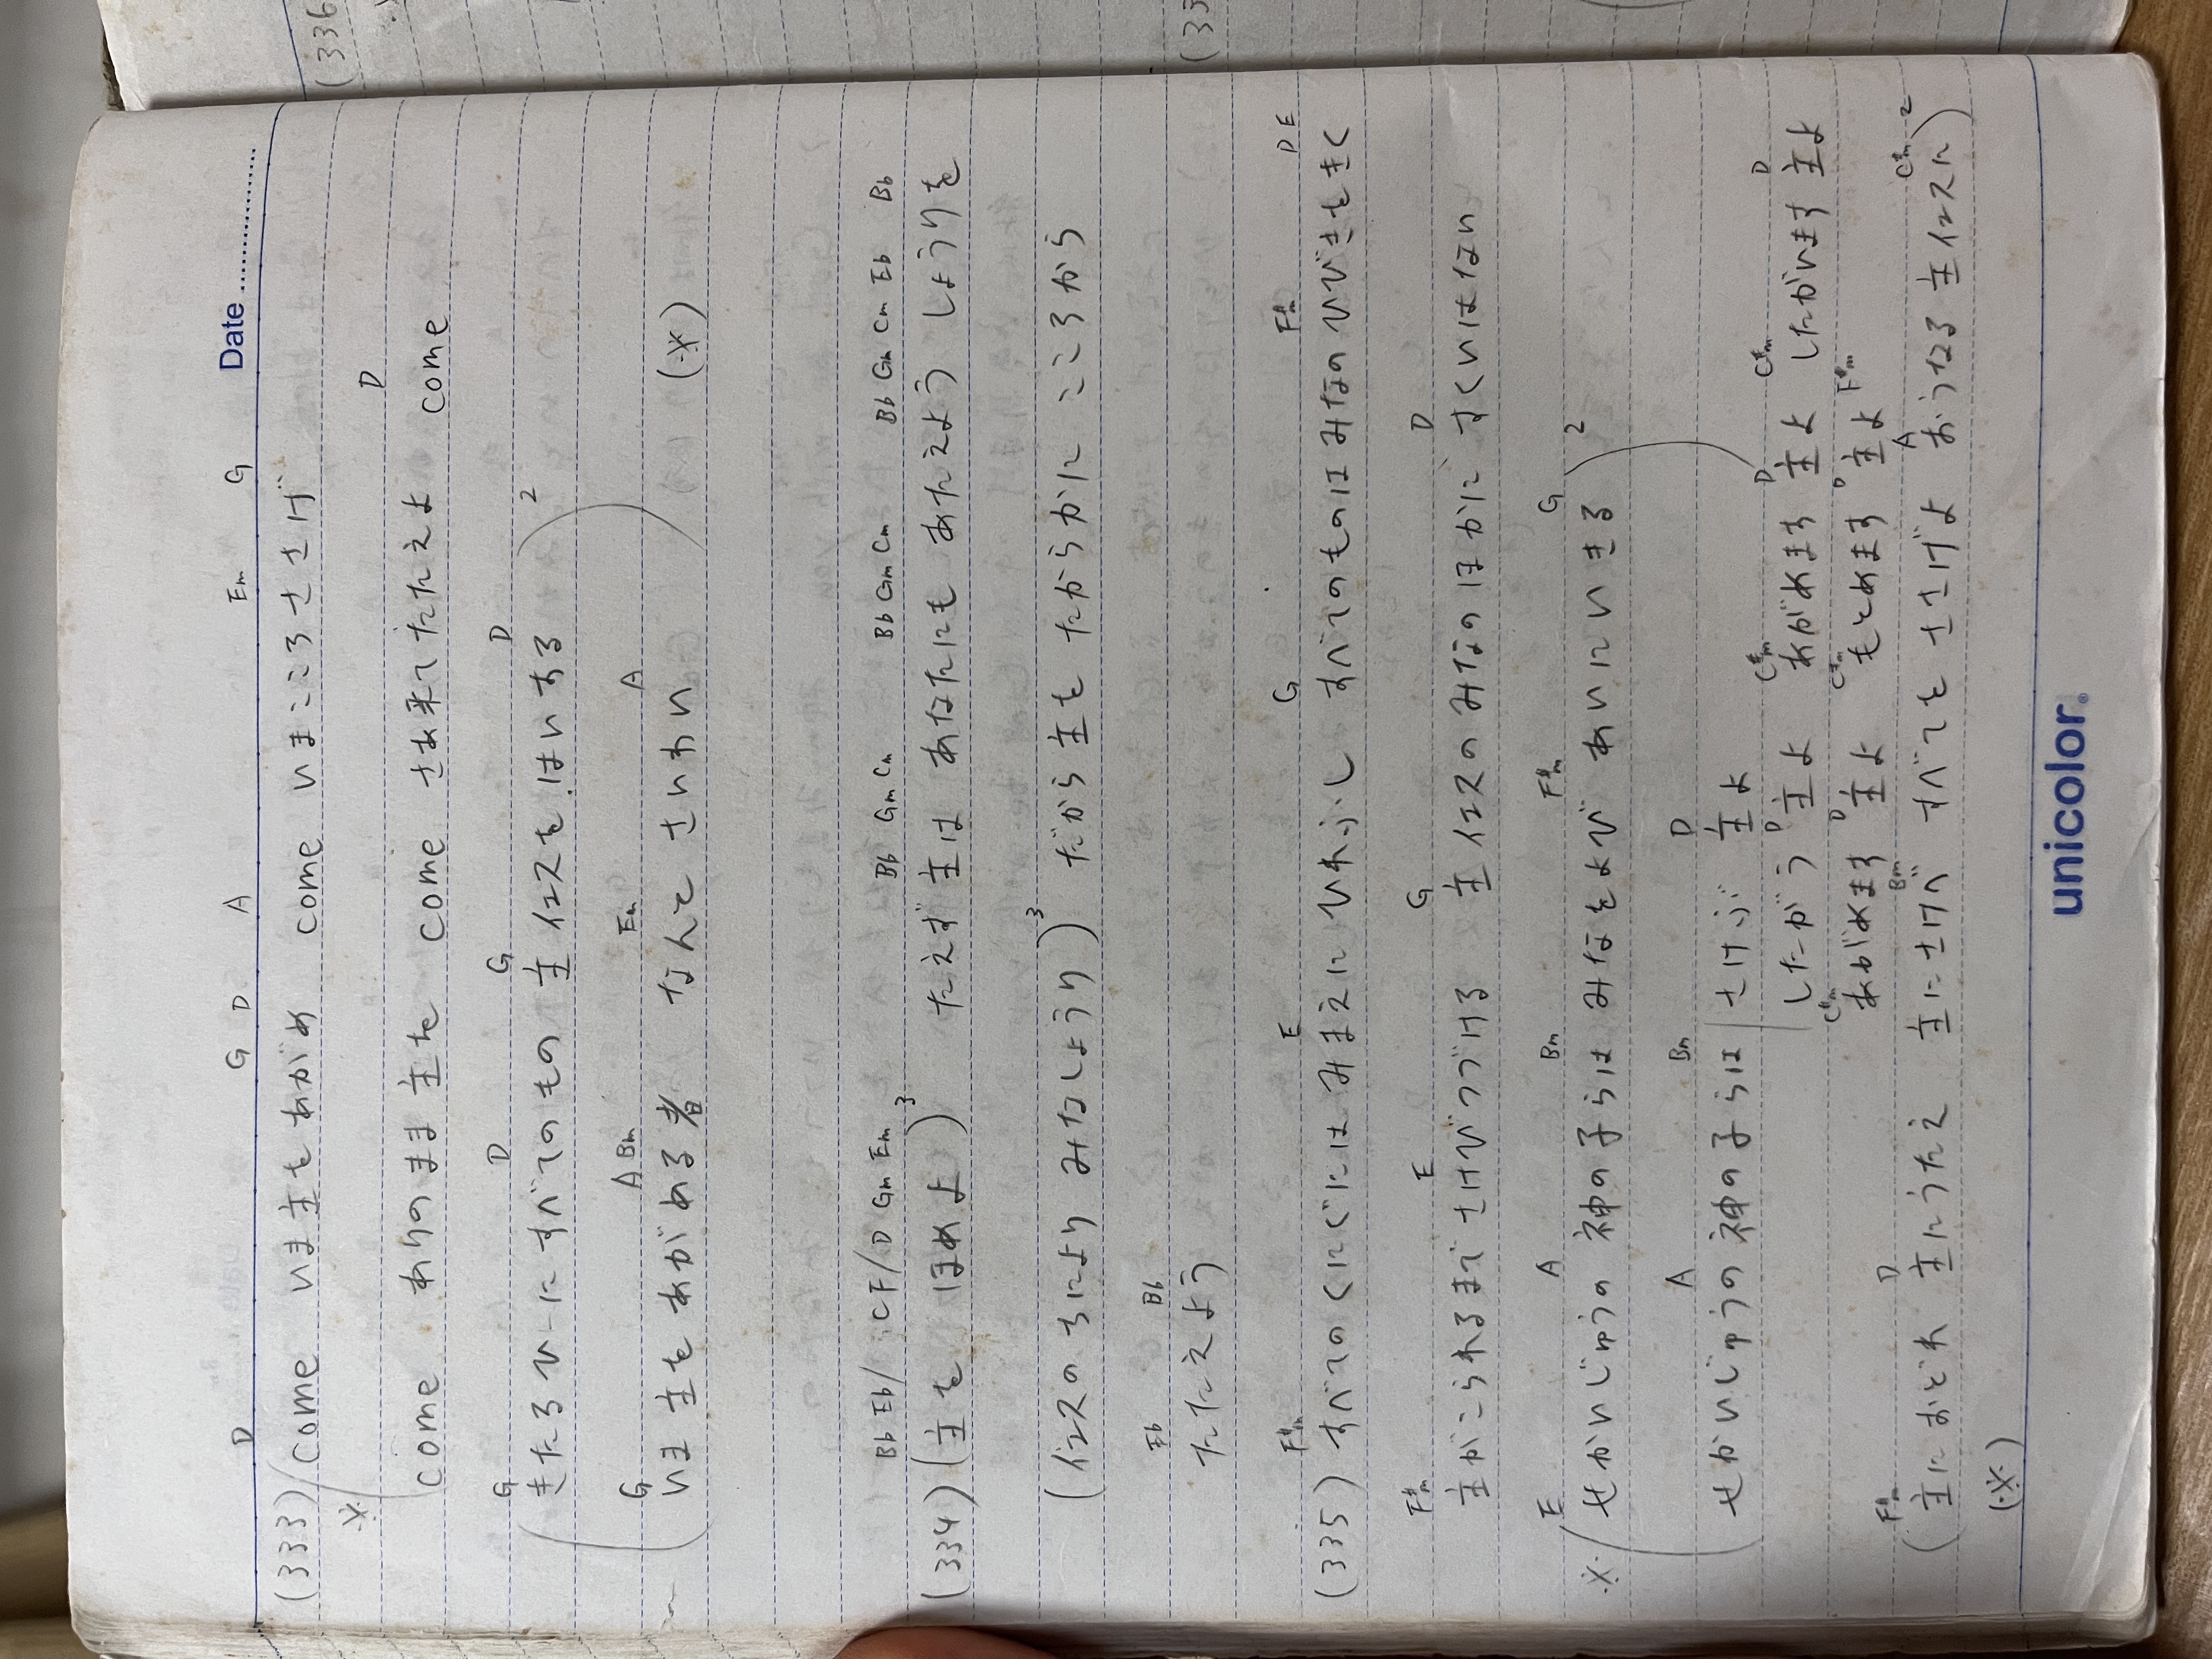 Date
D G D A Em G
(333) Come いま主をあがめ come いまこころささげ
※ D
come ありのまま主を come さあ来てたたえよ come
G D G D
きたるひーにすべてのもの 主イエスをはいする 2
G A Bm Em A
いま主をあがめる者 なんと さいわい (※)
Bb Eb/ CF/D Gm Em Bb Gm Cm Bb Gm Cm Bb Gm Cm Eb Bb
(334) (主を ほめよ)3 たえず主は あなたにも あたえよう しょうりを
(イエスのちにより みなしょうり)3 だから主を たからかに こころから
Eb Bb
たたえよう
F#m E G F#m D E
(335) すべてのくにぐにはみまえにひれふし すべてのものはみなのひびきをきく
F#m E G D
主がこられるまでさけびつづける 主イエスのみなのほかに すくいはない
E A Bm F#m G
※ せかいじゅうの神の子らは みなをよび あいにいきる 2
A Bm D
せかいじゅうの神の子らは さけぶ 主よ
C#m D C#m D
したがう 主よ あがめます 主よ したがいます 主よ
C#m D C#m D F#m
あがめます 主よ もとめます 主よ
F#m D Bm A C#m
(主におどれ 主にうたえ 主にさけべ すべてを ささげよ おうなる 主イエスに)2
(※)
unicolor®
(336
(33